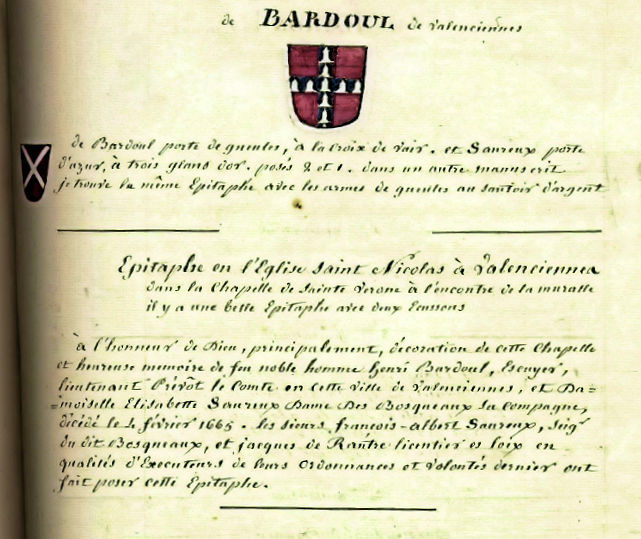 de BARDOUL de Valenciennes
de Bardoul porte de gueules, à la croix de vair. et Saureux porte
d'azur, à trois glans d'or. posés 2 et 1. dans un autre manuscrit
je trouve la même Epitaphe avec les armes de gueules au sautoir d'argent
Epitaphe en l'Eglise saint Nicolas à Valenciennes
dans la Chapelle de sainte Verone à l'encontre de la muralle
il y a une belle Epitaphe avec deux Ecussons
à l'honneur de Dieu, principalement, décoration de cette Chapelle
et heureuse memoire de feu noble homme henri Bardoul, Escuyer,
lieutenant Prévôt le Comte en cette ville de Valenciennes, et Da=
=moiselle Elisabette Saureux Dame Des Bosqueaux sa Compagne,
décédé le 4 février 1665. les sieurs françois-albert Saureux, seigr
du dit Bosqueaux, et jacques de Rantre licentier es loix en
qualités d'Executeurs de leurs Ordonnances et volontés dernier ont
fait poser cette Epitaphe.